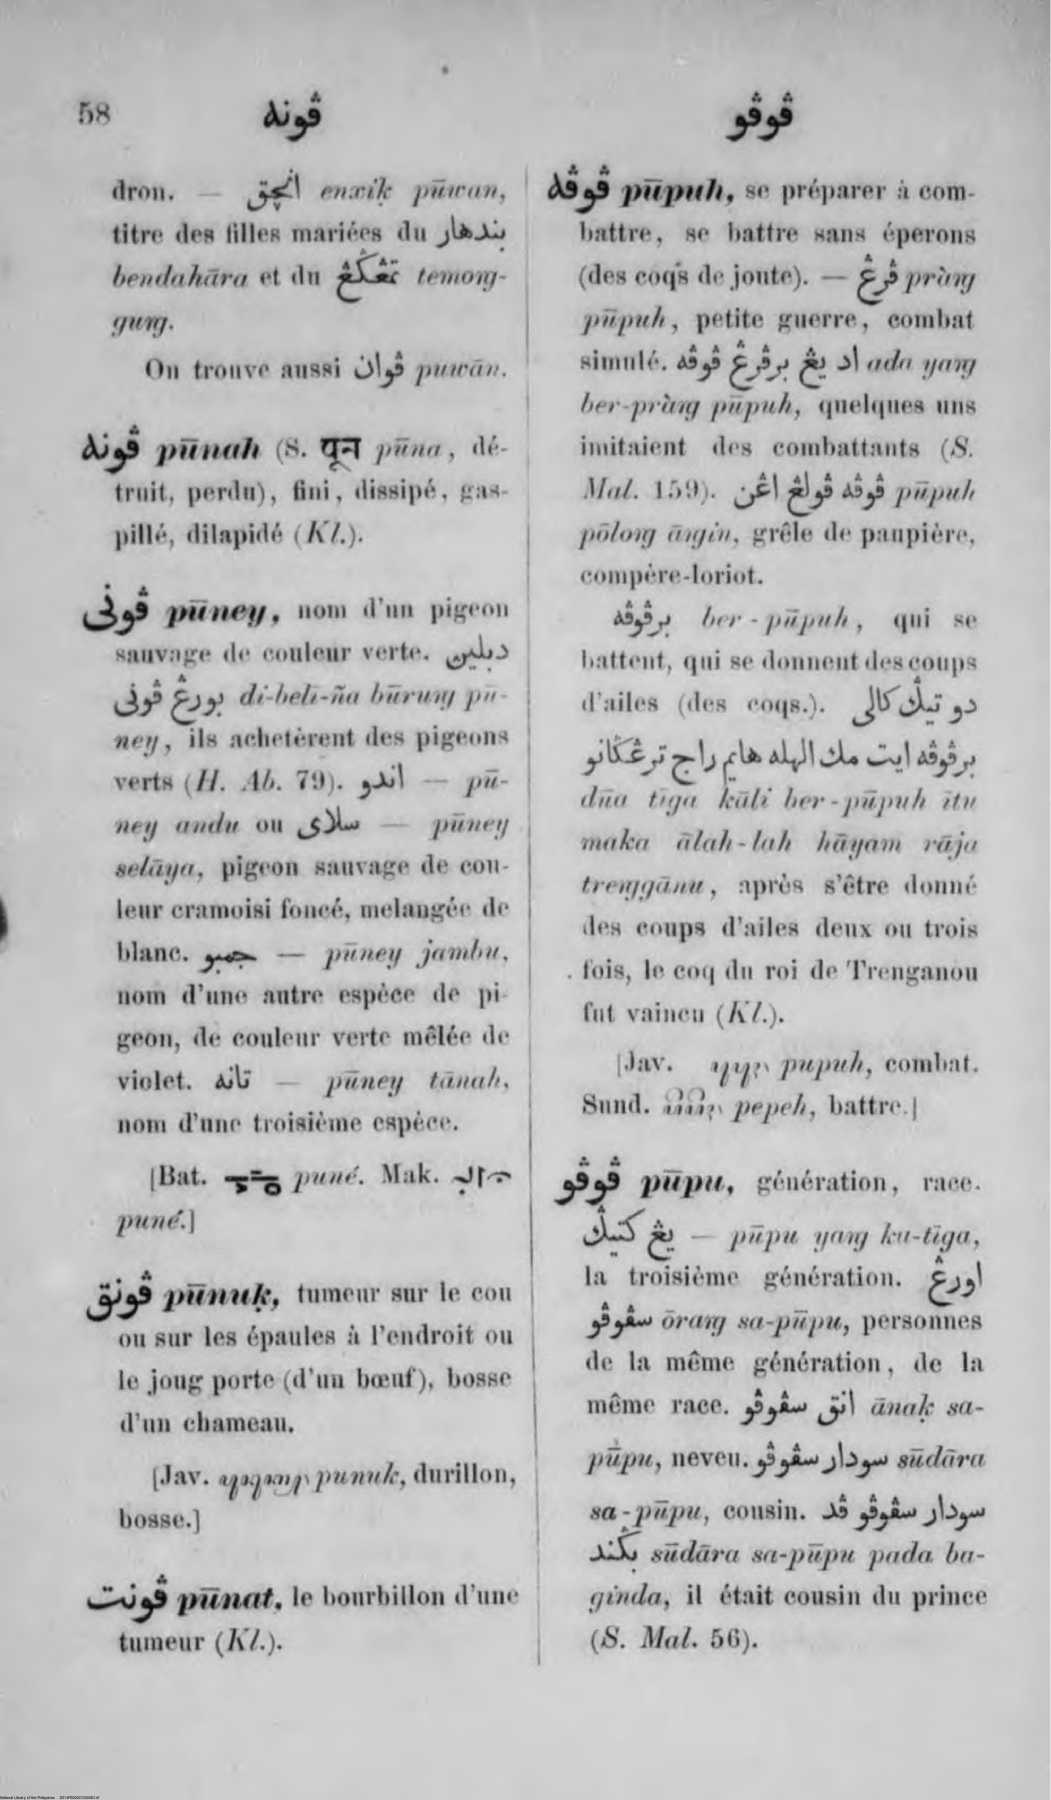 58 ڤونه ڤوڤو
dron. — انچق enxiḳ pūwan,
titre des filles mariées du بندهار
bendahāra et du تمڠݢڠ temoṅg-
guṅg.
On trouve aussi ڤوان puwān.
ڤونه pūnah (S. पून pūna, dé-
truit, perdu), fini, dissipé, gas-
pillé, dilapidé (Kl.).
ڤونى pūney, nom d'un pigeon
sauvage de couleur verte. دبلين
بورڠ ڤونى di-belī-ña būruṅg pū-
ney, ils achetèrent des pigeons
verts (H. Ab. 79). اندو — pū-
ney andu ou سلاى — pūney
selāya, pigeon sauvage de cou-
leur cramoisi foncé, melangée de
blanc. جمبو — pūney jambu,
nom d'une autre espèce de pi-
geon, de couleur verte mêlée de
violet. تانه — pūney tānah,
nom d'une troisième espèce.
[Bat. puné. Mak.
puné.]
ڤونق pūnuḳ, tumeur sur le cou
ou sur les épaules à l'endroit ou
le joug porte (d'un bœuf), bosse
d'un chameau.
[Jav. punuk, durillon,
bosse.]
ڤونت pūnat, le bourbillon d'une
tumeur (Kl.).
ڤوڤه pūpuh, se préparer à com-
battre, se battre sans éperons
(des coqs de joute). — ڤرڠ pràṅg
pūpuh, petite guerre, combat
simulé. اد يڠ برڤرڠ ڤوڤه ada yaṅg
ber-pràṅg pūpuh, quelques uns
imitaient des combattants (S.
Mal. 159). ڤوڤه ڤولڠ اڠن pūpuh
pōloṅg āṅgin, grêle de paupière,
compère-loriot.
برڤوڤه ber-pūpuh, qui se
battent, qui se donnent des coups
d'ailes (des coqs.). دو تيݢ كالى
برڤوڤه ايت مك الهله هايم راج ترڠݢانو
dūa tīga kāli ber-pūpuh ītu
maka ālah-lah hāyam rāja
treṅggānu, après s'être donné
des coups d'ailes deux ou trois
fois, le coq du roi de Trenganou
fut vaincu (Kl.).
[Jav. pupuh, combat.
Sund. pepeh, battre.]
ڤوڤو pūpu, génération, race.
يڠ كتيݢ — pūpu yaṅg ka-tīga,
la troisième génération. اورڠ
سڤوڤو ōraṅg sa-pūpu, personnes
de la même génération, de la
même race. انق سڤوڤو ānaḳ sa-
pūpu, neveu. سودار سڤوڤو sūdāra
sa-pūpu, cousin. سودار سڤوڤو ڤد
بݢند sūdāra sa-pūpu pada ba-
ginda, il était cousin du prince
(S. Mal. 56).